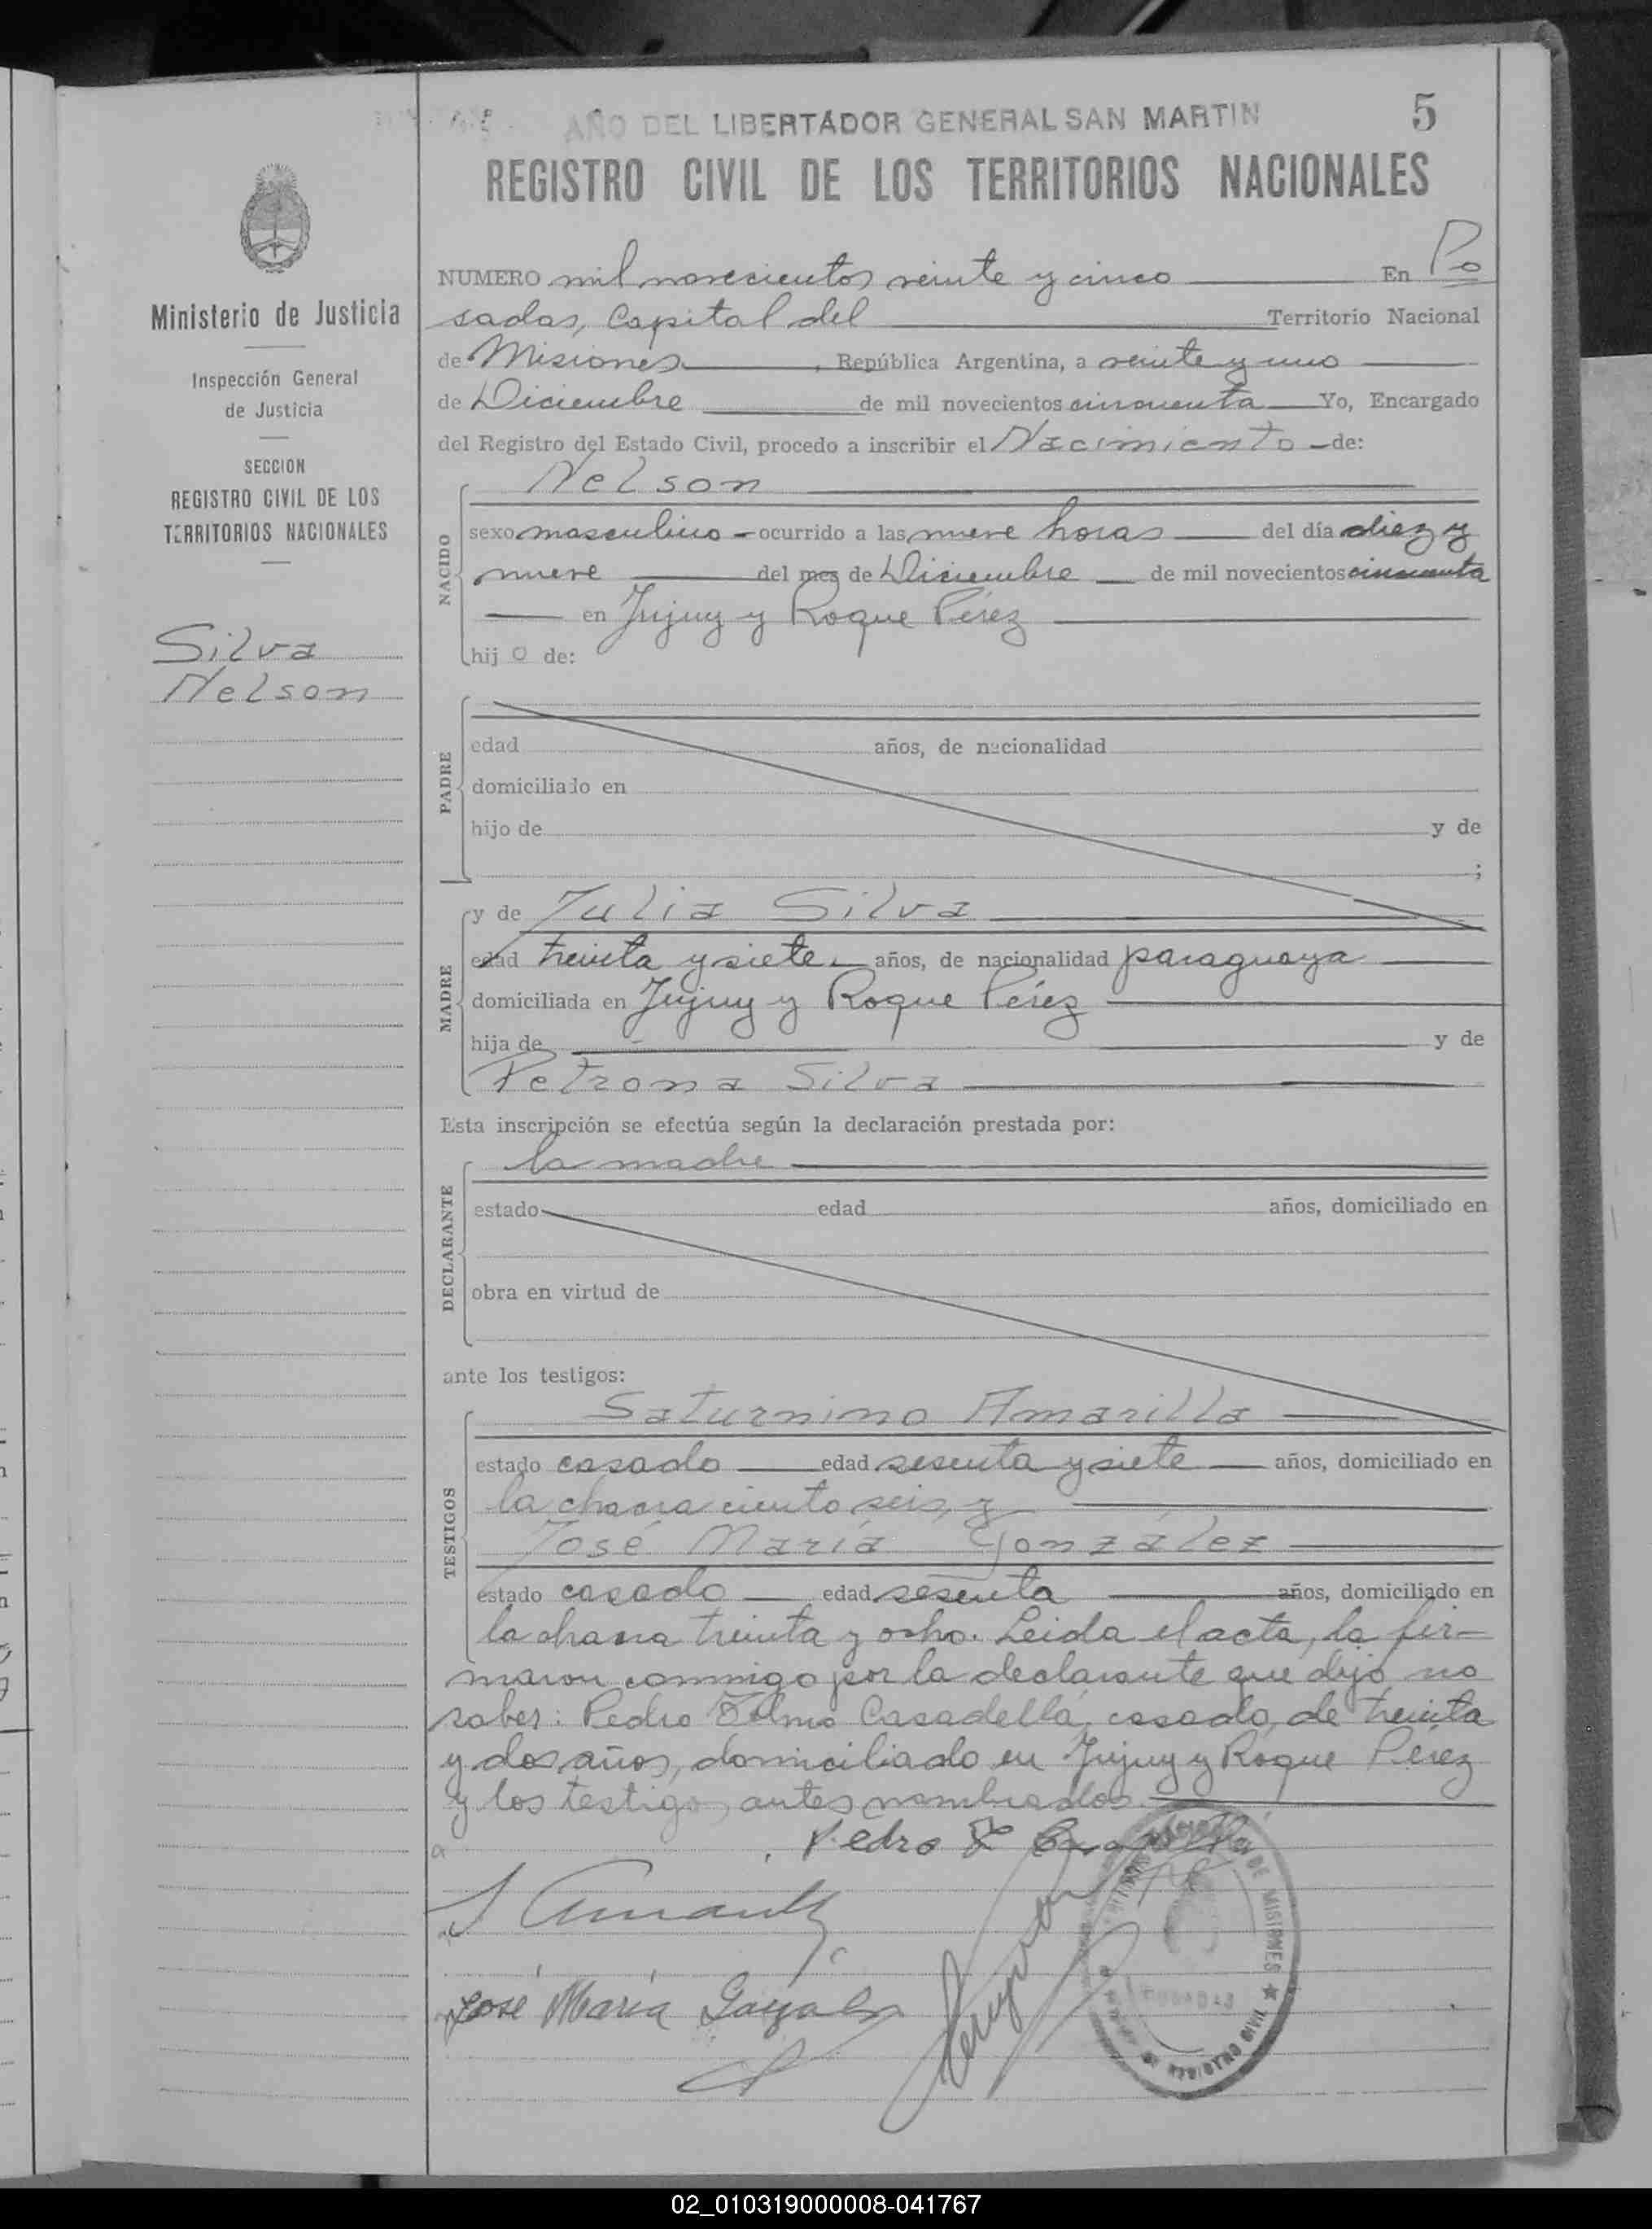 AÑO DEL LIBERTADOR GENERAL SAN MARTIN
5
REGISTRO CIVIL DE LOS TERRITORIOS NACIONALES
Ministerio de Justicia
Inspección General
de Justicia
SECCION
REGISTRO CIVIL DE LOS
TERRITORIOS NACIONALES
Silva
Nelson
NUMERO mil novecientos veinte y cinco En Po
sadas, Capital del Territorio Nacional
de Misiones, República Argentina, a veinte y uno
de Diciembre de mil novecientos cincuenta Yo, Encargado
del Registro del Estado Civil, procedo a inscribir el Nacimiento de:
NACIDO
Nelson
sexo masculino - ocurrido a las nueve horas del día diez y
nueve del mes de Diciembre de mil novecientos cincuenta
en Jujuy y Roque Pérez
hij o de:
PADRE
edad años, de nacionalidad
domiciliado en
hijo de y de
;
MADRE
y de Julia Silva
edad treinta y siete años, de nacionalidad paraguaya
domiciliada en Jujuy y Roque Pérez
hija de y de
Petrona Silva
Esta inscripción se efectúa según la declaración prestada por:
DECLARANTE
la madre
estado edad años, domiciliado en
obra en virtud de
ante los testigos:
TESTIGOS
Saturnino Amarilla
estado casado edad sesenta y siete años, domiciliado en
la chacra ciento seis, y
José María González
estado casado edad sesenta años, domiciliado en
la chacra treinta y ocho. Leida el acta, la fir-
maron conmigo por la declarante que dijo no
saber: Pedro Telmo Casadella, casado, de treinta
y dos años, domiciliado en Jujuy y Roque Pérez
y los testigos antes nombrados.
Pedro T
José María
MISIONES ★
REGISTRO CIVIL
02_010319000008-041767